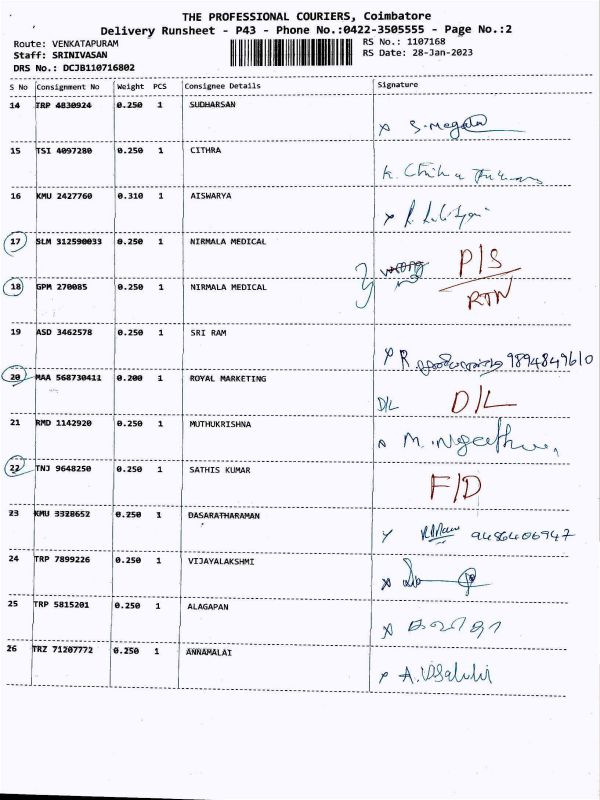 THE PROFESSIONAL COURIERS, Coimbatore
Delivery Runsheet - P43 - Phone No.:0422-3505555 - Page No.:2
Route: VENKATAPURAM RS No.: 1107168
Staff: SRINIVASAN RS Date: 28-Jan-2023
DRS No.: DCJB110716802
S No Consignment No Weight PCS Consignee Details Signature
14 TRP 4830924 0.250 1 SUDHARSAN
x S. Megala
15 TSI 4097280 0.250 1 CITHRA
K.
16 KMU 2427760 0.310 1 AISWARYA
x
17 SLM 312590033 0.250 1 NIRMALA MEDICAL
wrong P/S
18 GPM 270085 0.250 1 NIRMALA MEDICAL
RTN
19 ASD 3462578 0.250 1 SRI RAM
x R 9894849610
20 MAA 568730411 0.200 1 ROYAL MARKETING
D/L D/L
21 RMD 1142920 0.250 1 MUTHUKRISHNA
M.
22 TNJ 9648250 0.250 1 SATHIS KUMAR
F/D
23 KMU 3328652 0.250 1 DASARATHARAMAN
9486406947
24 TRP 7899226 0.250 1 VIJAYALAKSHMI
x
25 TRP 5815201 0.250 1 ALAGAPAN
x
26 TRZ 71207772 0.250 1 ANNAMALAI
x A. Visalakshi